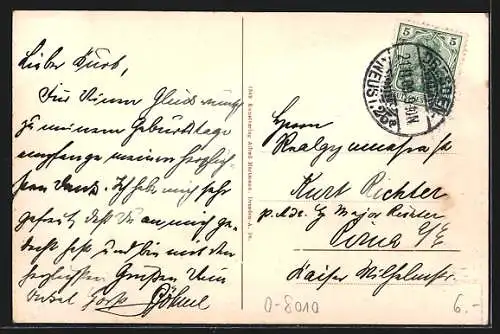 Lieber Kurt,
Für Deinen Glückwunsch
zu meinem Geburtstage
empfange meinen herzlich-
sten Dank. Ich habe mich sehr
gefreut, daß Du an mich ge-
dacht hast und bin mit den
herzlichsten Grüßen Dein
Onkel
1949 Kunstverlag Alfred Hartmann, Dresden A. 16.
5 5
DRESDEN
NEUST.
Herrn
Realgymnasiast
Kurt Richter
p. Adr. Major Richter
Pirna a/E
Kaiser Wilhelmstr.
0-8010
6.-